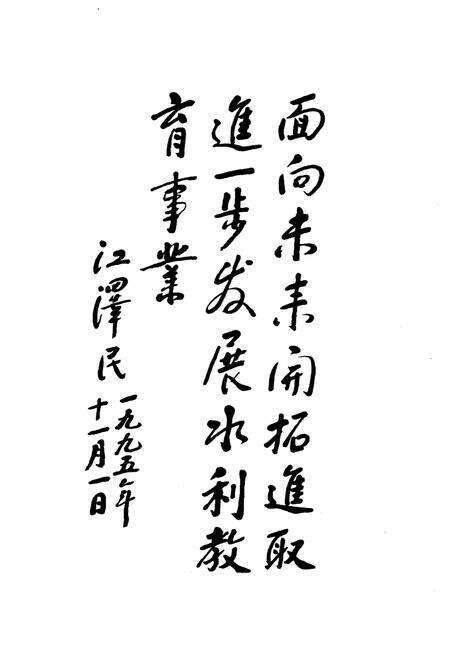 面向未来開拓進取
進一步发展水利教
育事業
江澤民
一九九五年
十一月一日